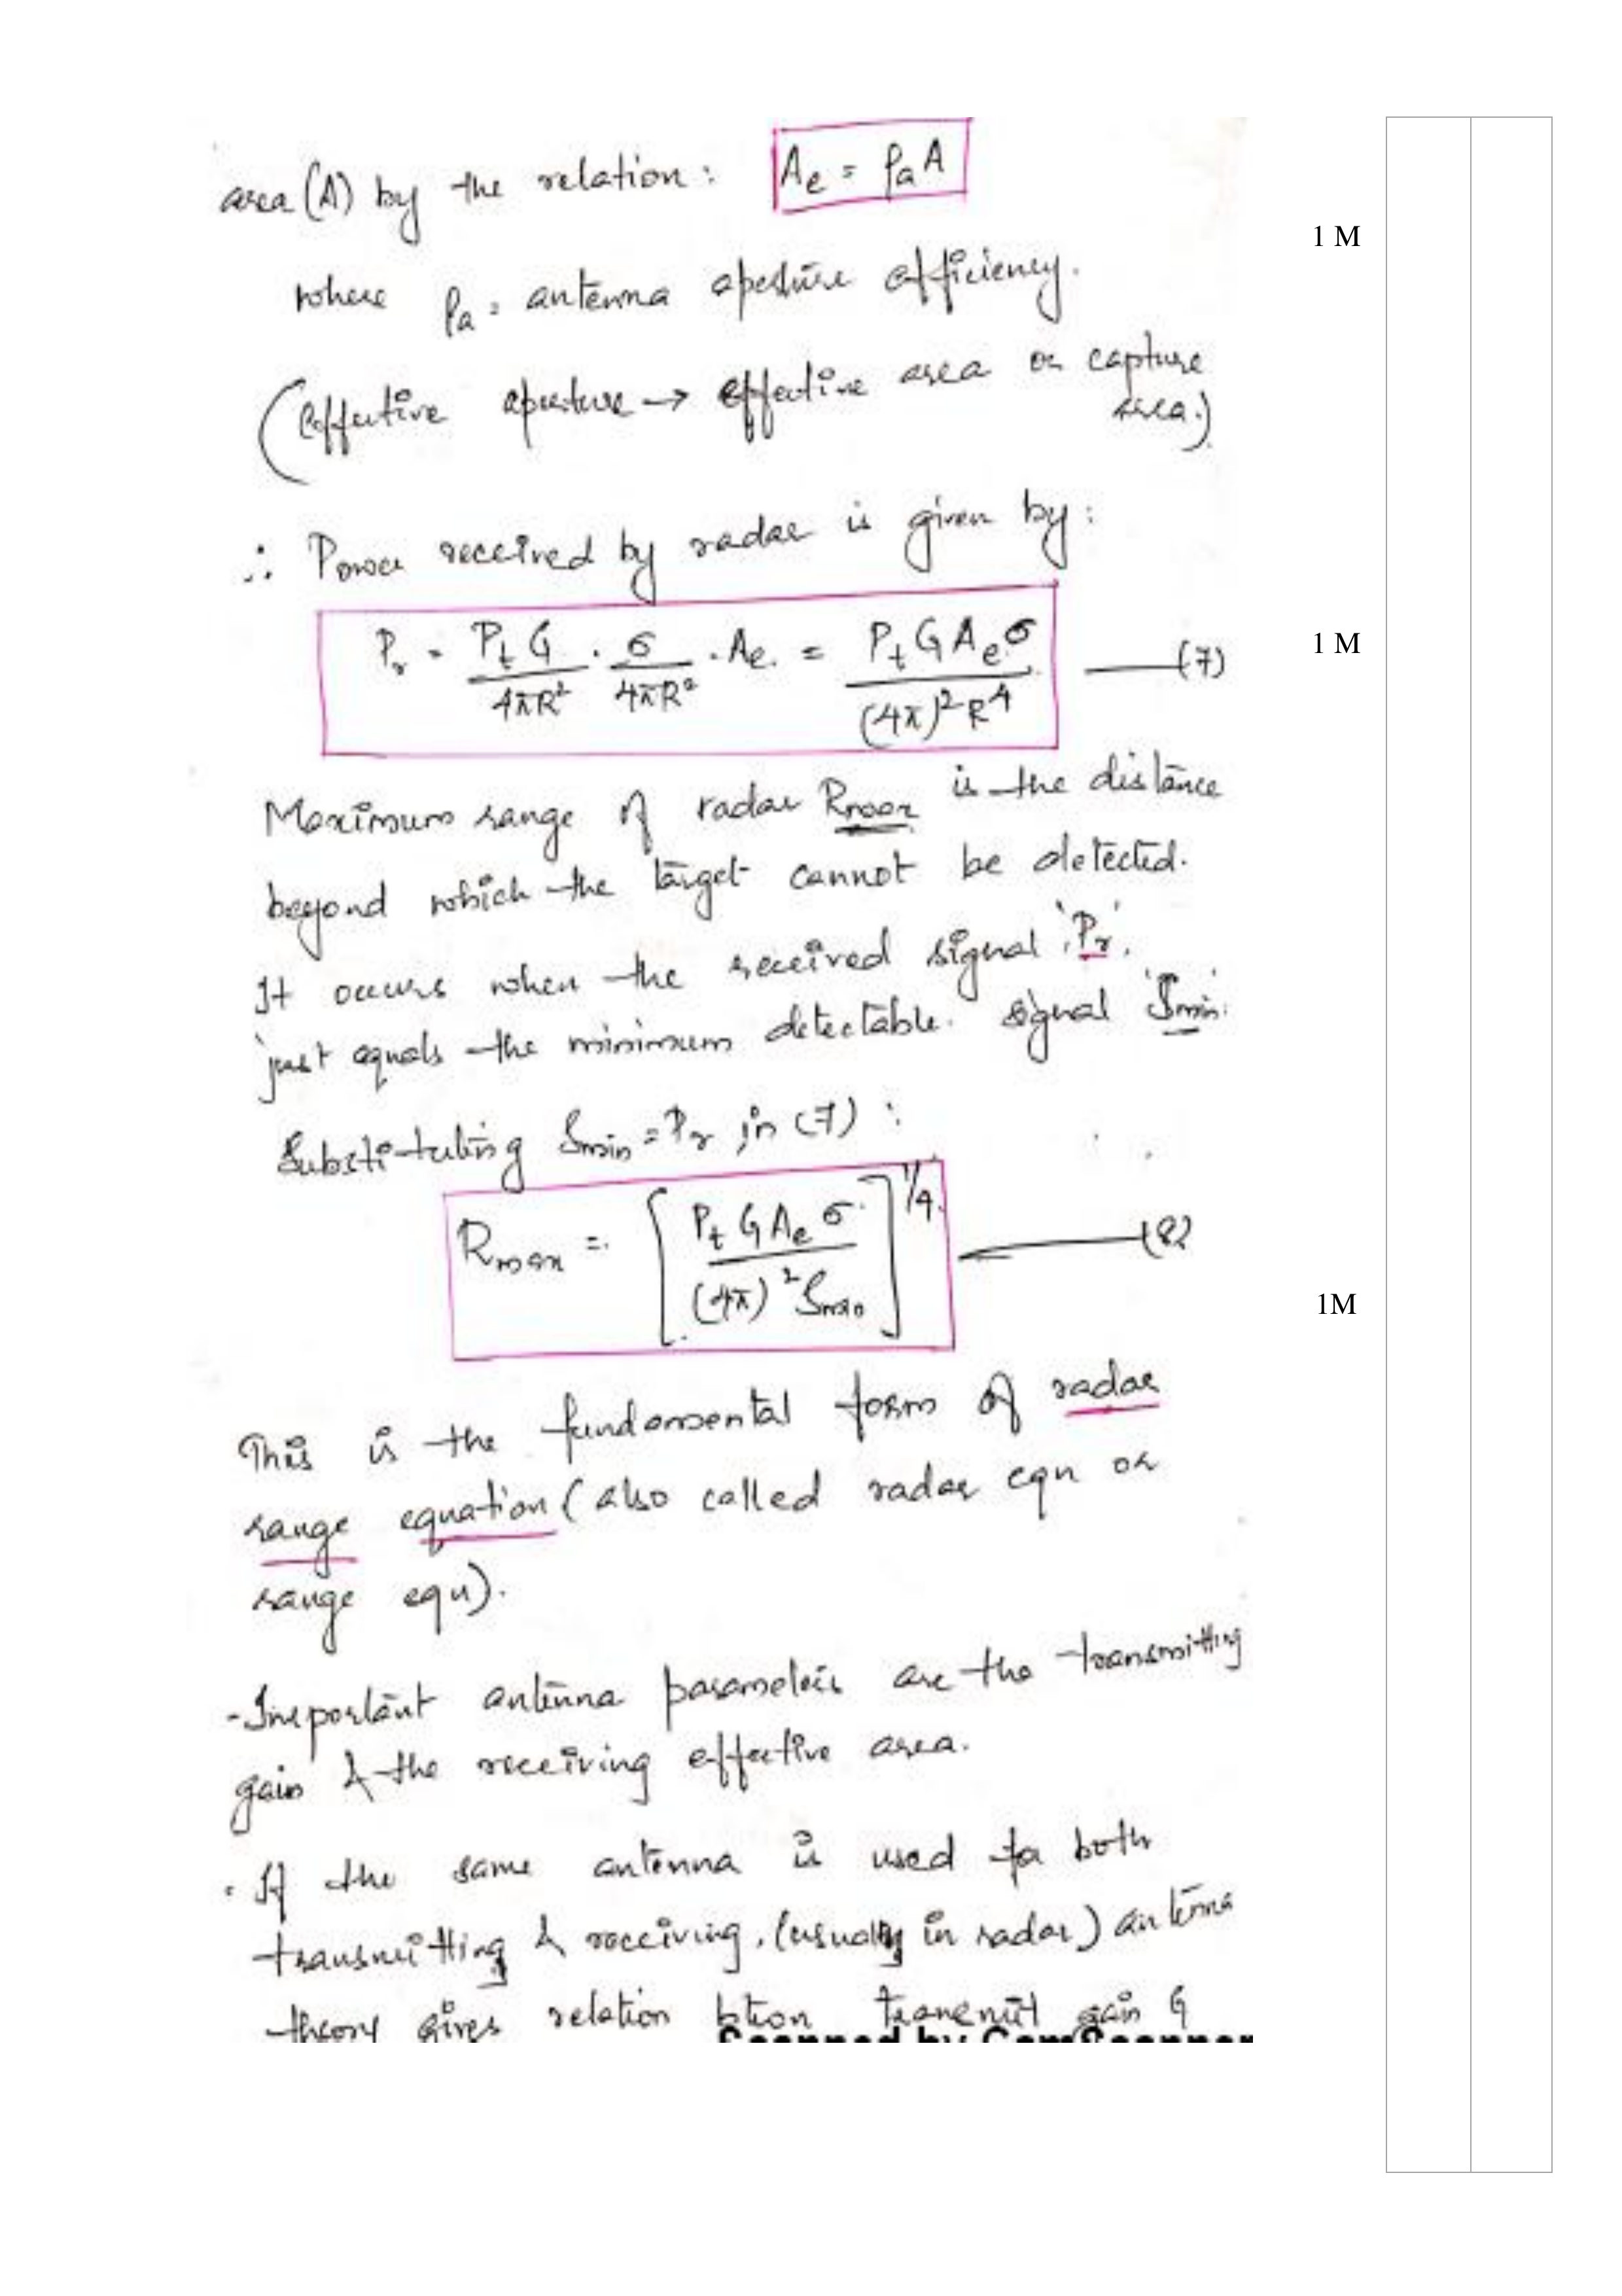 area (A) by the relation: Ae = ρa A
1 M
where ρa = antenna aperture efficiency.
(effective aperture → effective area or capture
area.)
∴ Power received by radar is given by:
Pr = PtG/4πR² · σ/4πR² · Ae = PtGAeσ/(4π)²R⁴ —(7)
1 M
Maximum range of radar Rmax is the distance
beyond which the target cannot be detected.
It occurs when the received signal 'Pr'
just equals the minimum detectable signal 'Smin'.
Substituting Smin = Pr in (7) :
Rmax = [PtGAeσ/(4π)²Smin]^1/4 —(8)
1M
This is the fundamental form of radar
range equation (also called radar eqn or
range eqn).
- Important antenna parameters are the transmitting
gain & the receiving effective area.
· If the same antenna is used for both
transmitting & receiving, (usually in radar) antenna
theory gives relation btwn transmit gain G
Scanned by CamScanner